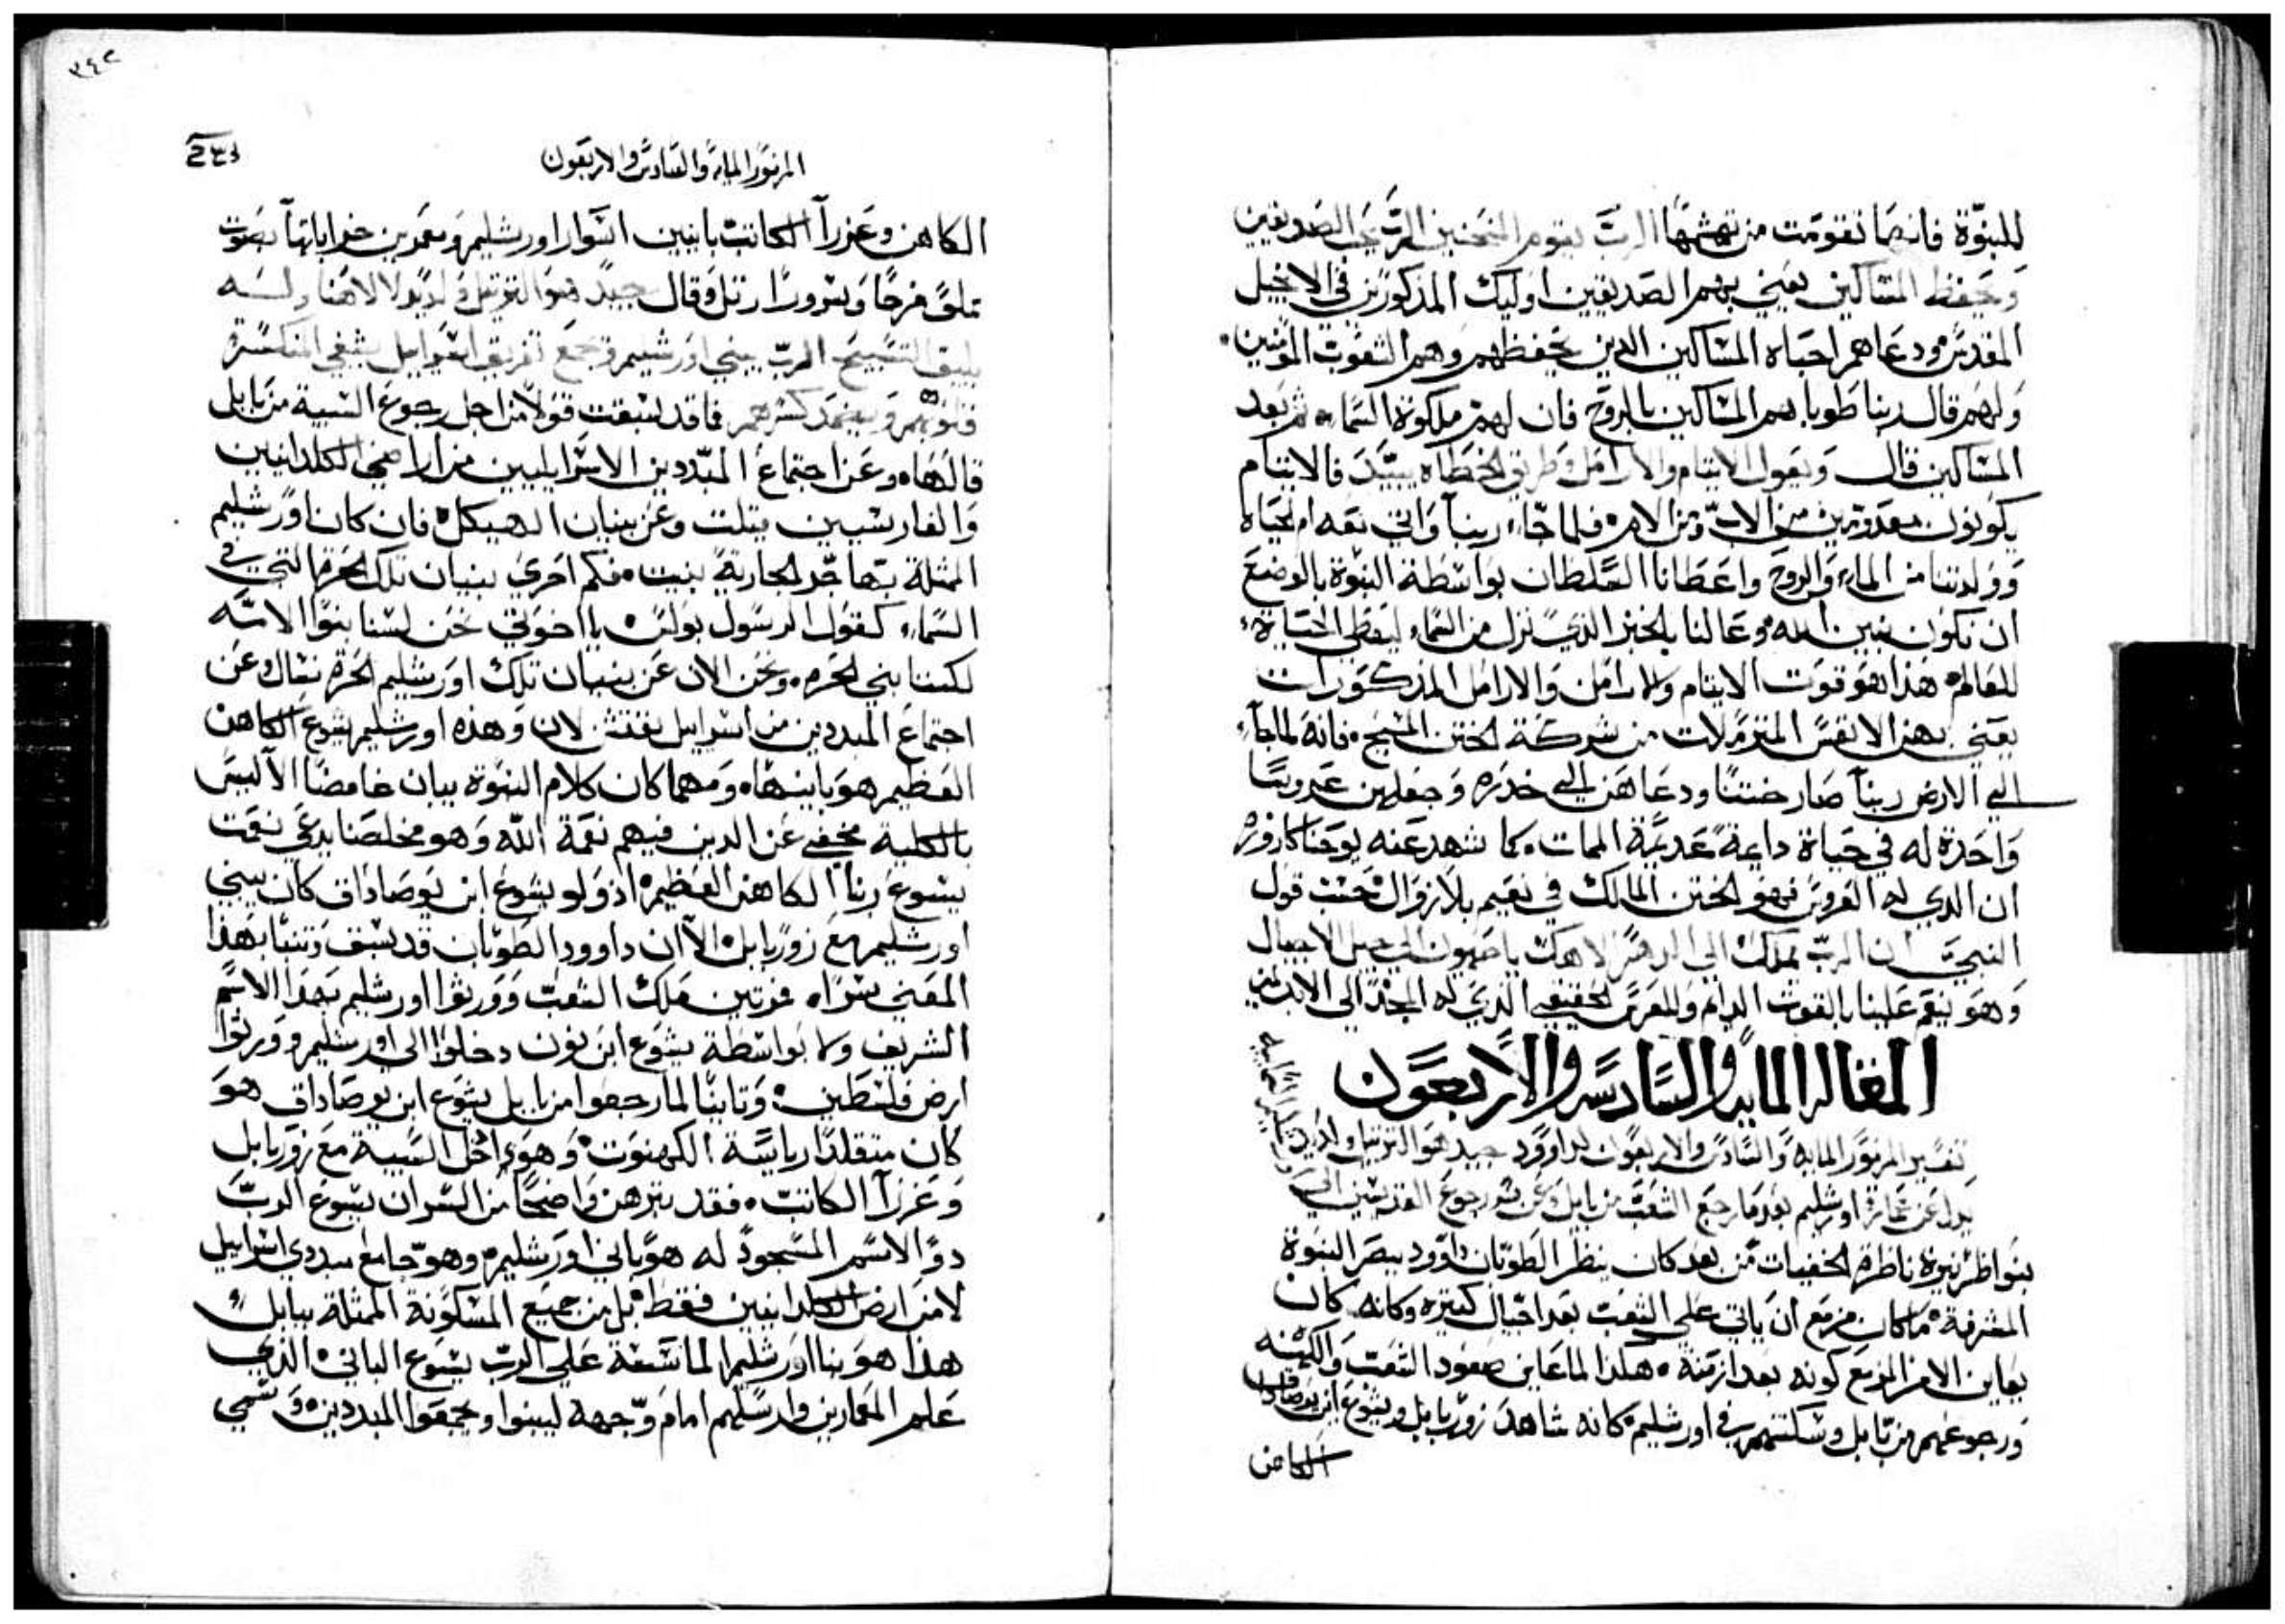 للبنوّة فانهما تقومت من تهشمها الربّ يقوم المنحنين الربّ يحب الصديقين
وَيحفظ المساكين يعني بهم الصديقين اوليك المذكورين في الانجيل
المقدس ودعاهم احباه المساكين الدين يحفظهم وهم الشعوب المومنين
ولهم قال ربنا طوبا بهم المساكين بالروح فان لهم ملكوة السماء ثم بعد
المساكين قال وَيعول الايتام والارامل وطريق الخطاه يبيد فالايتام
يكونون معدومين من الاب ومن الام فلما جاء ربنا واتي نعه ام الحياه
وولدتنا من الماء والروح واعطانا السلطان بواسطة البنوة بالوضع
ان نكون بنين الله وعالنا بالخبز الذي نزل من السماء ليعطي الحياة
للعالم هذا هو قوت الايتام والارامل والارامل المذكورات
يعني بهن الانفس المترملات من شركة الختن المسيح فانه لما جاء
الي الارض ربنا صار ختننا ودعاهن الي خدره وجعلهن عروسًا
وَاحدة له في حياة دايمة عديمة الممات كما شهد عنه يوحنا كاروز
ان الدي له العروس فهو الختن المالك في نعيم بلا زوال حسب قول
النبي ان الربّ يملك الي الدهر الاهك يا صهيون الي جيل الاجيال
وَهو ينعم علينا بالقوت الدايم وللعرس الحقيقي الذي له المجد الي الابد امين
المقاله المايه والسادسه والاربعون
تفسير المزمور المايه والسادس والاربعون لداوود جيد هو الترتيل ولذيذ
يدل عن عمارة اورشليم بعد ما رجع الشعب من بابل وعن سر رجوع القديسين الي
اورشليم السماييه
بنواظر نيرة ناظرة الخفيات من بعد كان ينظر الطوبان داوود ببصر النبوة
المشرفة ما كان مزمع ان ياتي علي الشعب بعد اجيال كتيره وكانه كان
يعاين الامر المزمع كونه بعد ازمنة هكذا لما عاين صعود الشعب والكهنه
ورجوعهم من بابل وسكنتهم في اورشليم كانه شاهد زوربابل ويشوع ابن يوصاداق
الكاهن
٣٤٢
المزمور المايه والسادس والاربعون
الكاهن وعزرآ الكاتب بانيين اسوار اورشليم ومعمرين خراباتها بصوت
تملئ فرحًا وسرورًا رتل وقال جيدٌ هو الترتيل ولذيذ لالاهنا وله
يليق التسبيح الربّ يبني اورشليم وَيجمع تفريق اسراييل يشفي المنكسرة
قلوبهم ويضمد كسرهم فاقد سبقت قولا من اجل رجوع السبية من بابل
قالها وعن اجتماع المبددين الاسراييليين من اراضي الكلدانيين
والفارسيين متلت وعن بنيان الهيكل فان كان اورشليم
الممثلة بهاجر الجارية بنيت فكم احري بنيان تلك الحرة التي في
السماء كقول الرسول بولس يا اخوتي نحن لسنا بنوا الامه
لكننا بني الحره ونحن الان عن بنيان تلك اورشليم الحرة نسال وعن
اجتماع المبددين من اسراييل نفتش لان وَهذه اورشليم يشوع الكاهن
العظيم هو بانيها ومهما كان كلام النبوة بيان غامضًا الا ليس
بالكلية مخفي عن الدين فيهم نعمة الله وَهو مخلصنا يدعي نعمت
يسوع ربنا الكاهن العظيم اذ ولو يشوع ابن يوصاداق كان يبني
اورشليم مع زوربابل الا ان داوود الطوبان قد سبق وتنبا بهذا
المعني سرا مرتين ملك الشعب وَورثوا اورشليم بهذا الاسم
الشريف ولا بواسطة يشوع ابن نون دخلوا الي اورشليم وورثوا
ارض فلسطين وَتانيًا لما رجعوا من بابل يشوع ابن يوصاداق هو
كان متقلدًا رياسَة الكهنوت وَهو داخل السبية مع زوربابل
وَعزرآ الكاتب فقد تبرهن واضحًا من السر ان يسوع الربّ
دو الاسم المسجود له هو باني اورشليم وهو جامع مبددي اسراييل
لا من ارض الكلدانيين فقط بل من جميع المسكونة الممثلة ببابل
هذا هو بنا اورشليم الماسسة علي الربّ يسوع الباني الذي
علم المعمارين وارسلهم امام وجهه ليبنوا ويجمعوا المبددين وَسمي